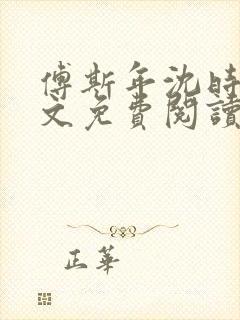 傅斯年沈時
文免費閱讀
正華